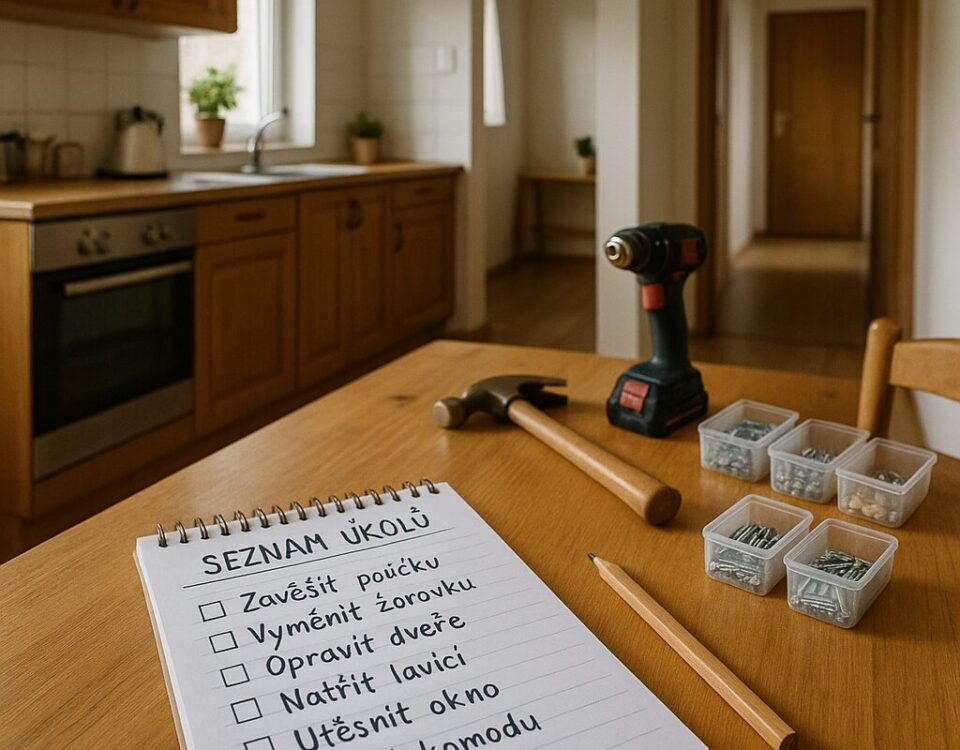 SEZNAM ÚKOLŮ
Zavěšit poučku
Vyměnit žorovku
Opravit dveře
Natřít lavící
Utěsnit okno
komodu